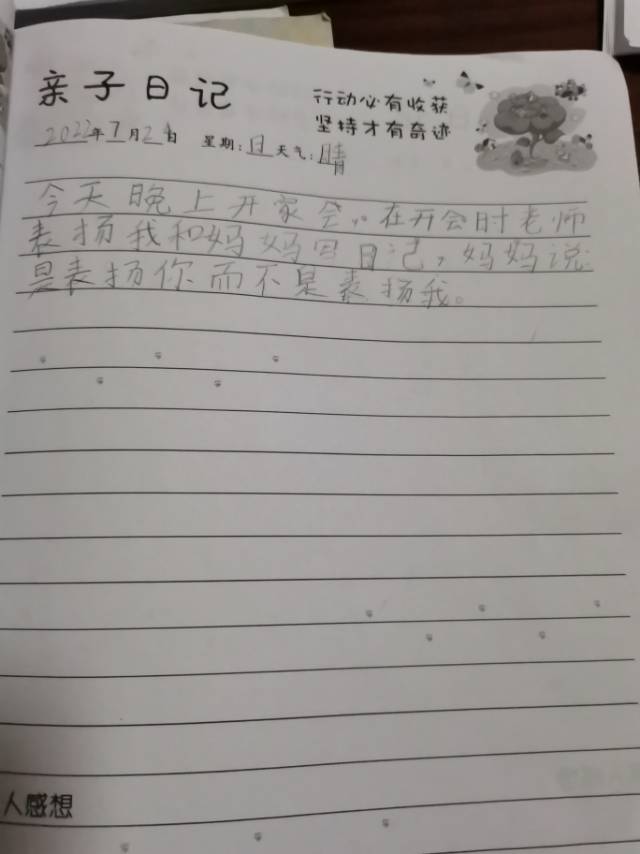 亲子日记
行动必有收获
坚持才有奇迹
2022年7月24日 星期:日 天气:晴
今天晚上开家会,。在开会时老师
表扬我和妈妈写日记,妈妈说
是表扬你而不是表扬我。
人感想